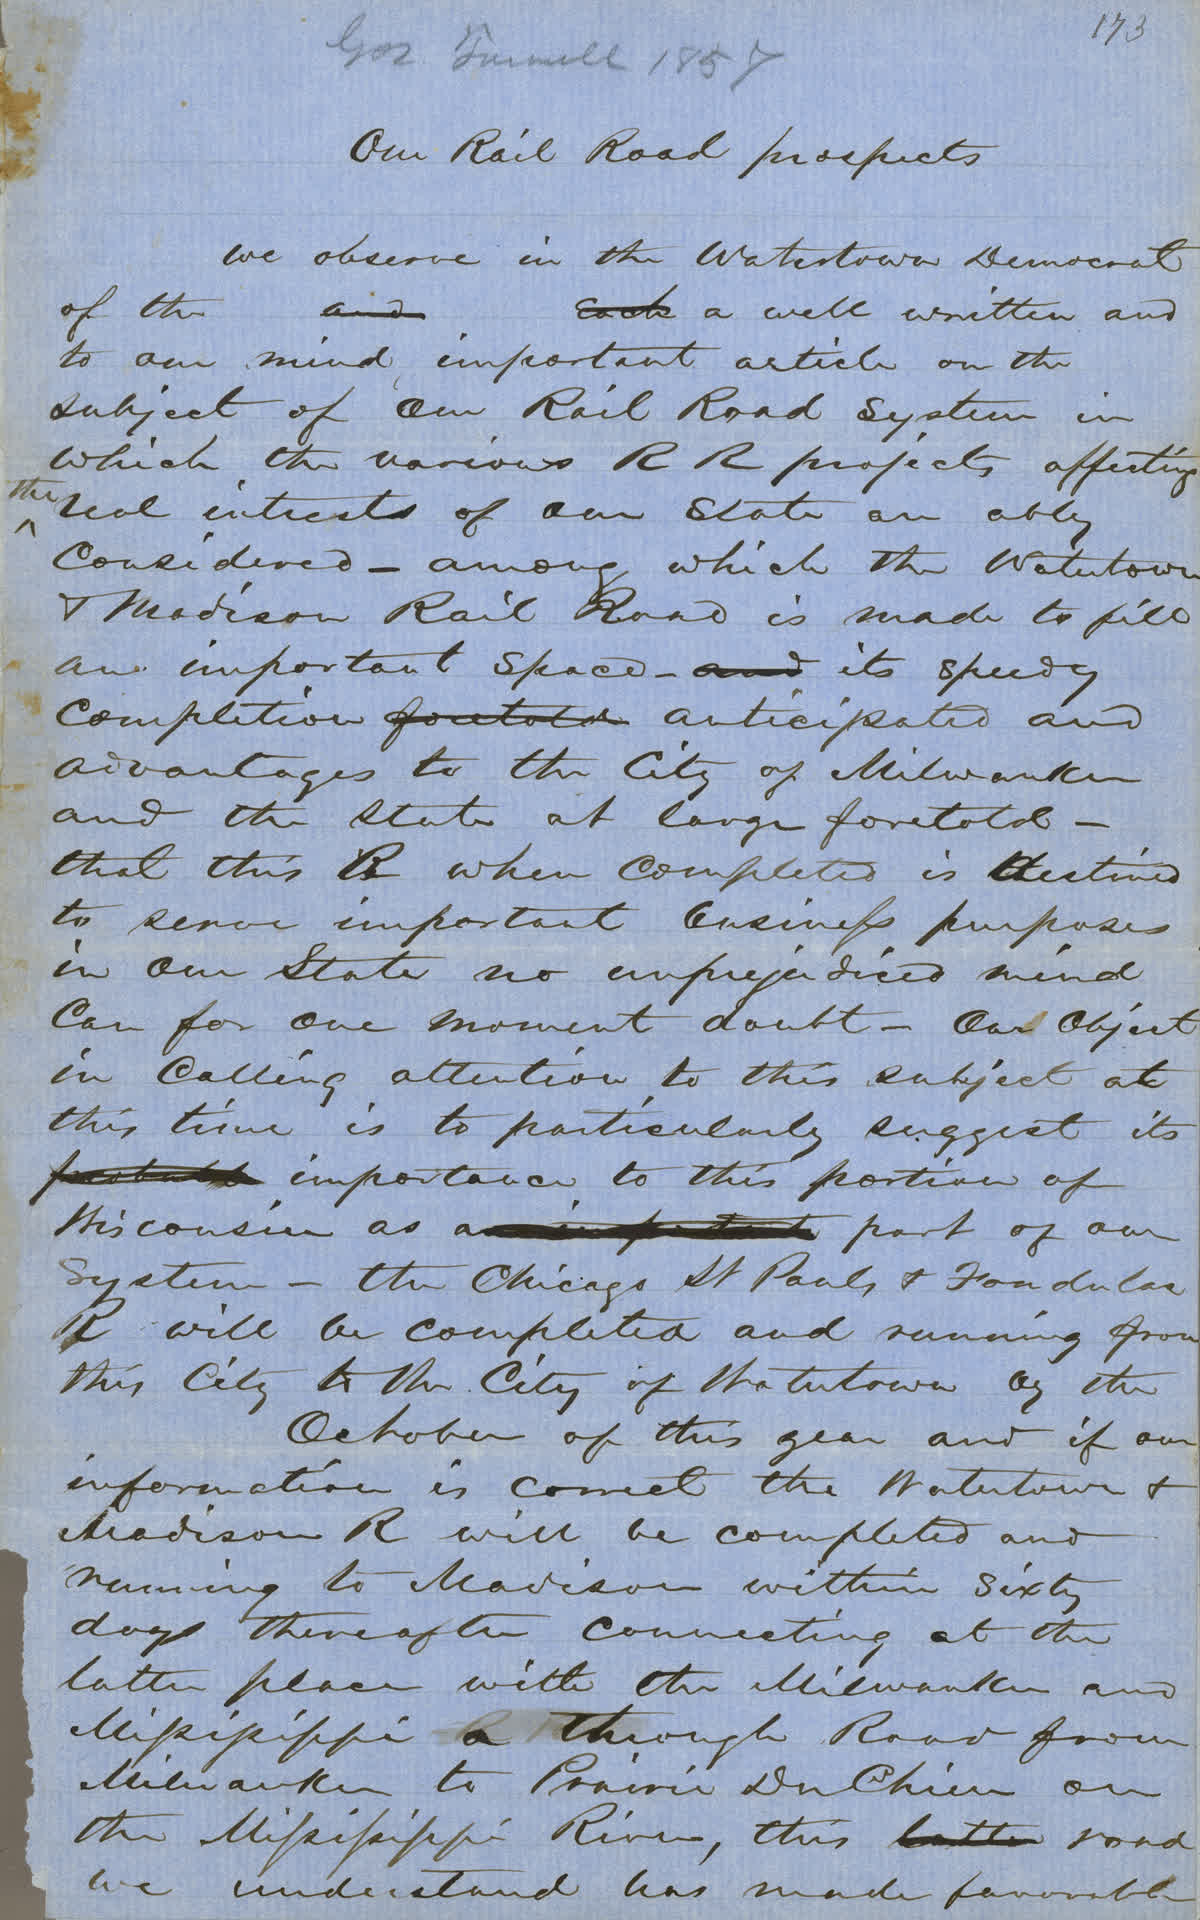 173
Gov. Farwell 1857
Our Rail Road prospects
We observe in the Watertown Democrat
of the and each a well written and
to our mind, important article on the
subject of our Rail Road System in
which the various R R projects affecting
the
real intrests of our State are ably
Considered – among which the Watertown
& Madison Rail Road is made to fill
an important Space – and its speedy
Completion foretold anticipated and
advantages to the City of Milwaukee
and the State at large foretold –
that this R when Completed is destined
to serve important business purposes
in our State no unprejudiced mind
Can for one moment doubt – Our Object
in Calling attention to this subject at
this time is to particularly suggest its
probable importance to this portion of
Wisconsin as an important part of our
System – the Chicago St Pauls & Fondulac
R will be completed and running from
this City to the City of Watertown by the
October of this year and if our
information is correct the Watertown &
Madison R will be completed and
running to Madison within Sixty
days thereafter Connecting at the
latter place with the Milwaukee and
Missisippi a through Road from
Milwaukee to Prairie Du Chien on
the Missisippi River, this latter road
we understand has made favorable